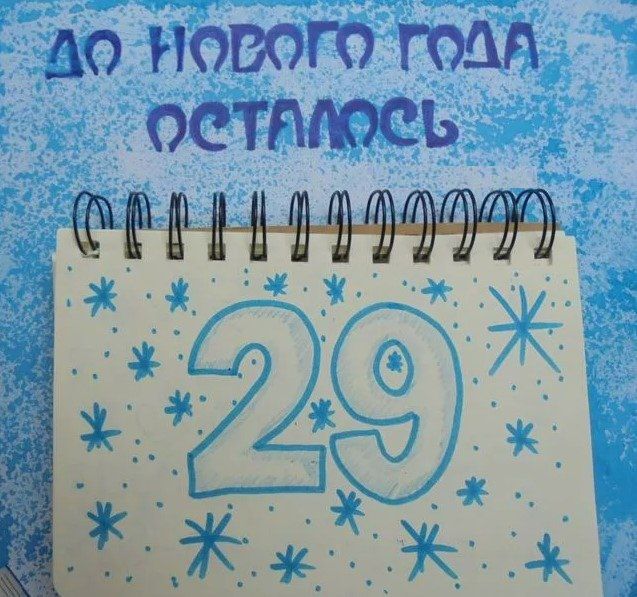 ДО НОВОГО ГОДА
ОСТАЛОСЬ
29